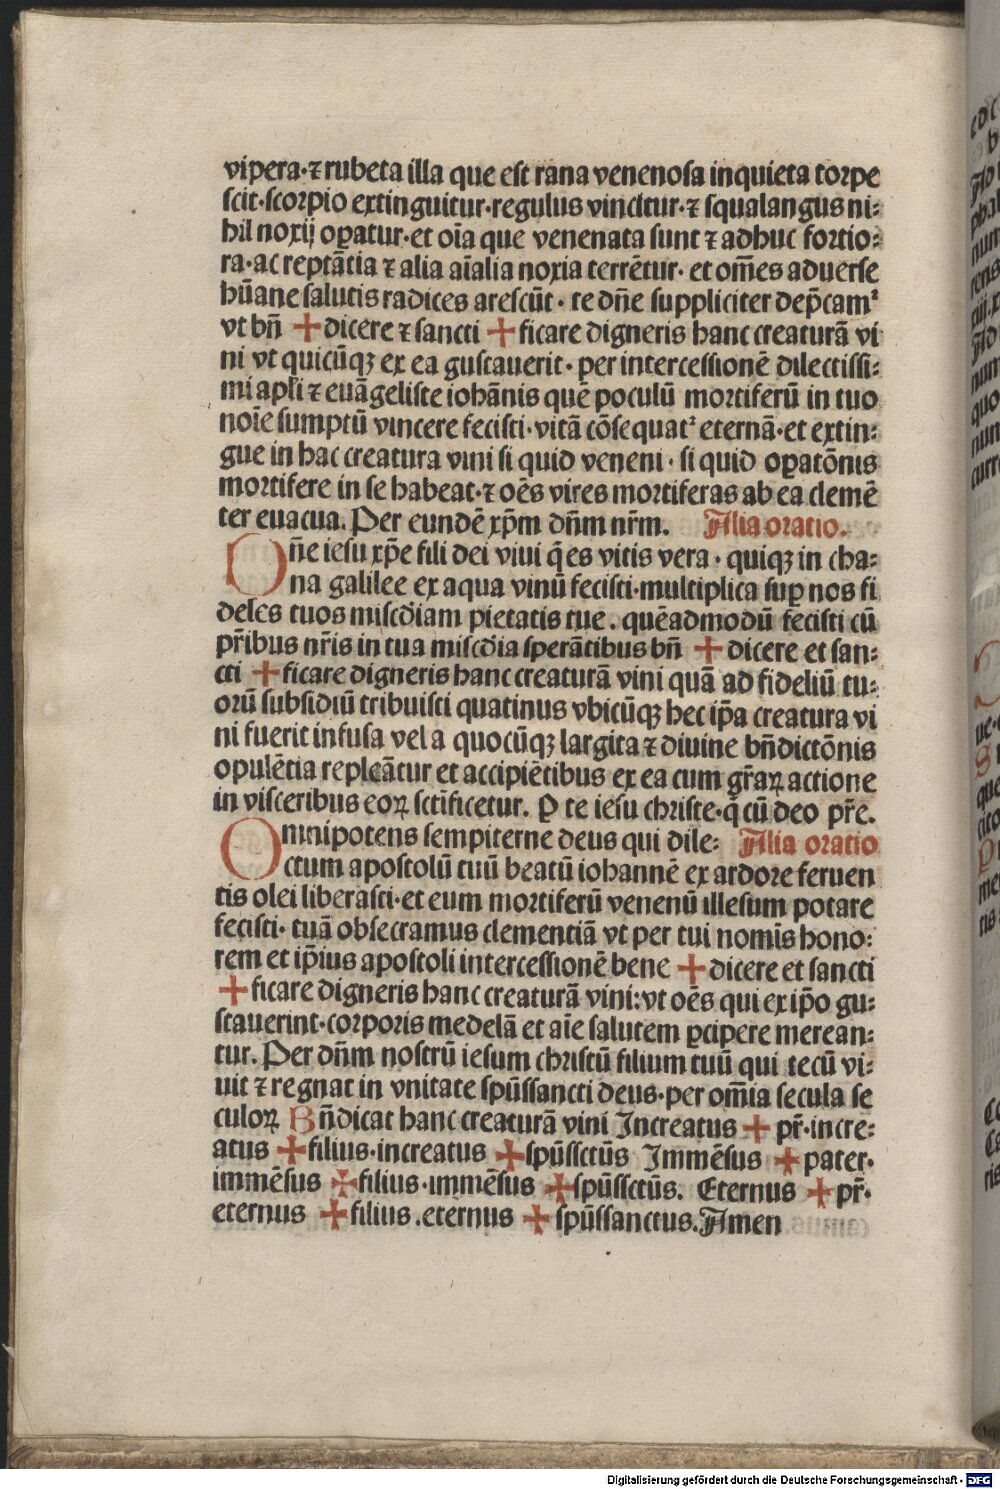 vipera·⁊ rubeta illa que eſt rana venenoſa inquieta torpe
ſcit·ſcorpio extinguitur·regulus vincitur·⁊ ſqualangus ni⸗
hil noxij oꝑatur·et oīa que venenata ſunt ⁊ adhuc fortio⸗
ra·ac reptātia ⁊ alia aīalia noxia terrētur· et om̄es aduerſe
hūane ſalutis radices areſcūt· te dn̄e ſuppliciter dep̄camꝰ
vt bn̄ ✚dicere ⁊ ſancti ✚ficare digneris hanc creaturā vi
ni vt quicūqꝫ ex ea guſtauerit· per interceſſionē dilectiſſi⸗
mi apłi ⁊ euāgeliſte iohānis quē poculū mortiferū in tuo
noīe ſumptū vincere feciſti·vitā cōſequatꝰ eternā·et extin⸗
gue in hac creatura vini ſi quid veneni· ſi quid oꝑatōnis
mortifere in ſe habeat·⁊ oēs vires mortiferas ab ea clemē
ter euacua. Per eundē xp̄m dn̄m nr̄m. Alia oratio.
One ieſu xp̄e fili dei viui q̄ es vitis vera· quiqꝫ in cha⸗
na galilee ex aqua vinū feciſti·multiplica ſuꝑ nos fi
deles tuos miſcd̄iam pietatis tue. quēadmodū feciſti cū
pr̄ibus nr̄is in tua miſcd̄ia ſperātibus bn̄ ✚dicere et ſan⸗
cti ✚ficare digneris hanc creaturā vini quā ad fideliū tu⸗
orū ſubſidiū tribuiſti quatinus vbicūqꝫ hec ip̄a creatura vi
ni fuerit infuſa vel a quocūqꝫ largita ⁊ diuine bn̄dictōnis
opulētia repleātur et accipiētibus ex ea cum gr̄aꝝ actione
in viſceribus eoꝝ ſctīficetur. P te ieſu chriſte·q̄ cū deo pr̄e.
Omnipotens ſempiterne deus qui dile⸗ Alia oratio
ctum apoſtolū tuū beatū iohannē ex ardore feruen
tis olei liberaſti·et eum mortiferū venenū illeſum potare
feciſti· tuā obſecramus clementiā vt per tui nomīs hono⸗
rem et ip̄ius apoſtoli interceſſionē bene ✚dicere et ſancti
✚ficare digneris hanc creaturā vini:vt oēs qui ex ip̄o gu⸗
ſtauerint·corporis medelā et aīe ſalutem ꝑcipere merean⸗
tur. Per dn̄m noſtrū ieſum chriſtū filium tuū qui tecū vi⸗
uit ⁊ regnat in vnitate ſpūſſancti deus·per om̄ia ſecula ſe
culoꝝ Bn̄dicat hanc creaturā vini Increatus ✚ pr̄·incre⸗
atus ✚filius·increatus ✚ſpūſſctūs Immēſus ✚pater·
immēſus ✚filius·immēſus ✚ſpūſſctūs. Eternus ✚pr̄·
eternus ✚filius.eternus ✚ ſpūſſanctus.Amen
Digitalisierung gefördert durch die Deutsche Forschungsgemeinschaft · DFG